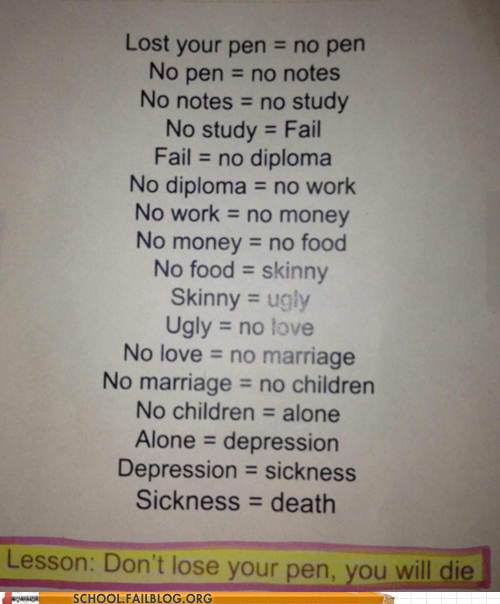 Lost your pen = no pen
No pen = no notes
No notes = no study
No study = Fail
Fail = no diploma
No diploma = no work
No work = no money
No money = no food
No food = skinny
Skinny = ugly
Ugly = no love
No love = no marriage
No marriage = no children
No children = alone
Alone = depression
Depression = sickness
Sickness = death
Lesson: Don't lose your pen, you will die
SCHOOL.FAILBLOG.ORG